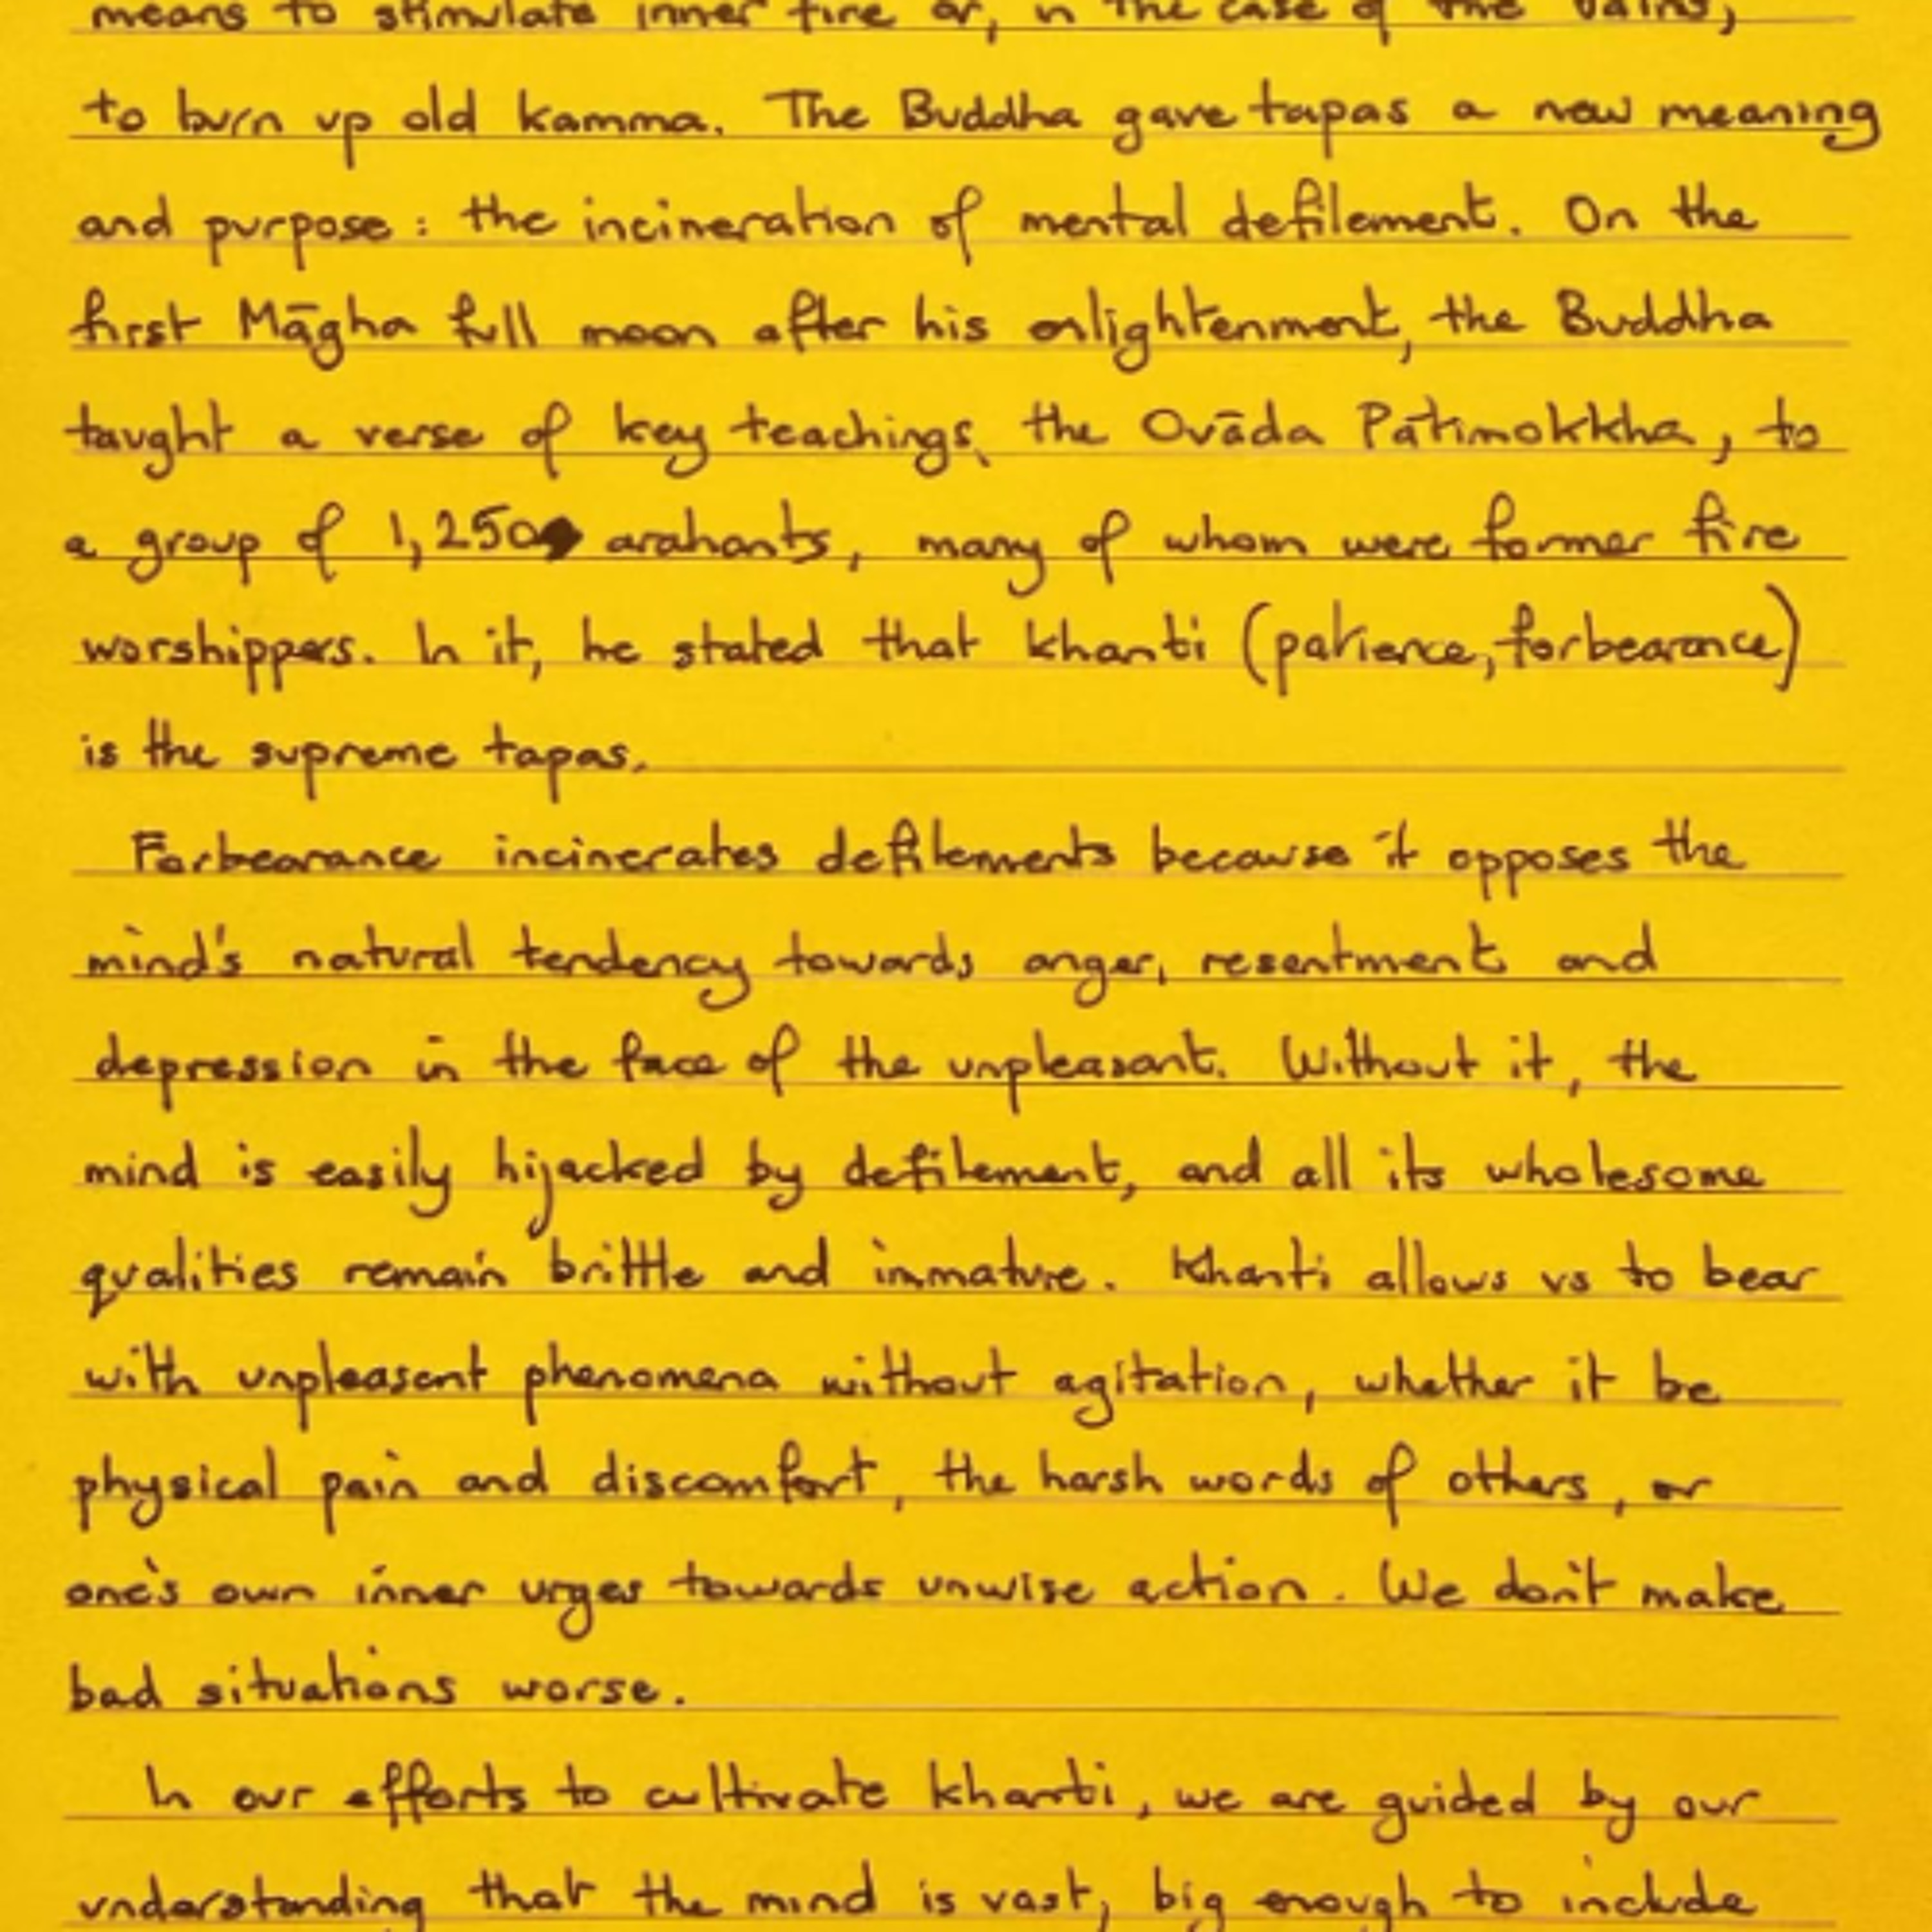 means to stimulate inner fire or, in the case of the Jains,
to burn up old kamma. The Buddha gave tapas a new meaning
and purpose: the incineration of mental defilement. On the
first Māgha full moon after his enlightenment, the Buddha
taught a verse of key teachings, the Ovāda Pātimokkha, to
a group of 1,250 arahants, many of whom were former fire
worshippers. In it, he stated that khanti (patience, forbearance)
is the supreme tapas.
Forbearance incinerates defilements because it opposes the
mind's natural tendency towards anger, resentment and
depression in the face of the unpleasant. Without it, the
mind is easily hijacked by defilement, and all its wholesome
qualities remain brittle and immature. Khanti allows us to bear
with unpleasant phenomena without agitation, whether it be
physical pain and discomfort, the harsh words of others, or
one's own inner urges towards unwise action. We don't make
bad situations worse.
In our efforts to cultivate khanti, we are guided by our
understanding that the mind is vast, big enough to include